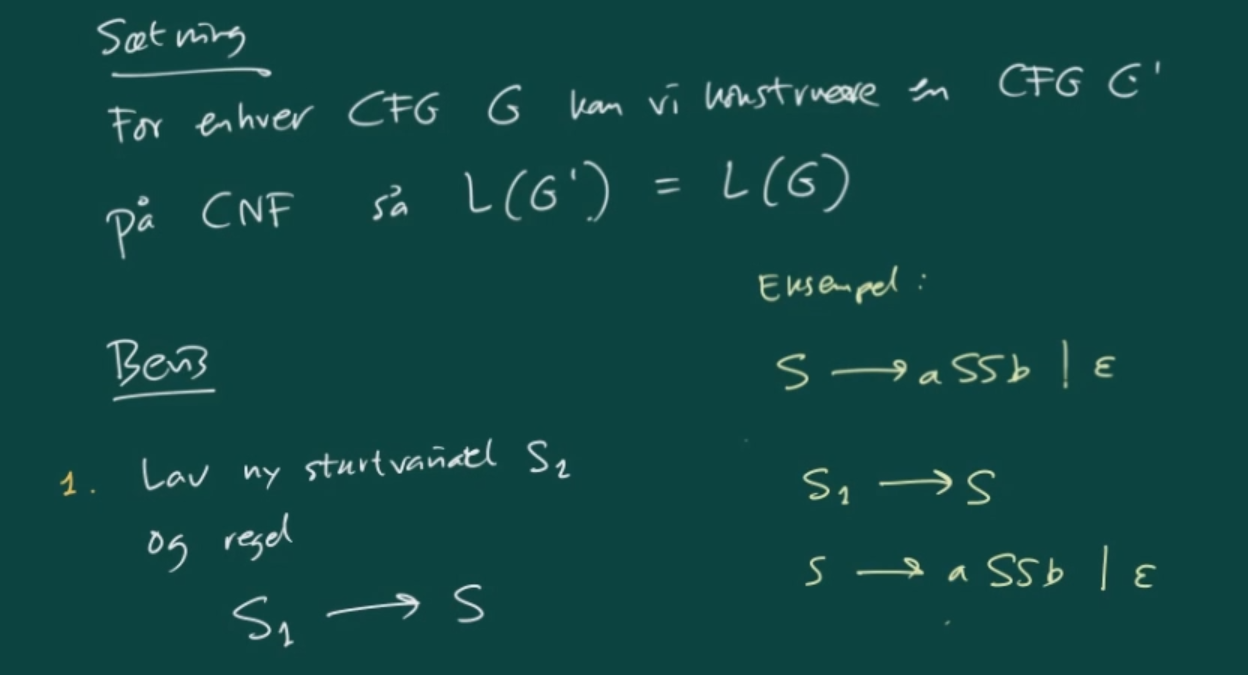 Sætning
For enhver CFG G kan vi konstruere en CFG G'
på CNF så L(G') = L(G)
Bevis
1. Lav ny startvariabel S₂
og regel
S₁ → S
Eksempel:
S → aSSb | ε
S₁ → S
S → aSSb | ε